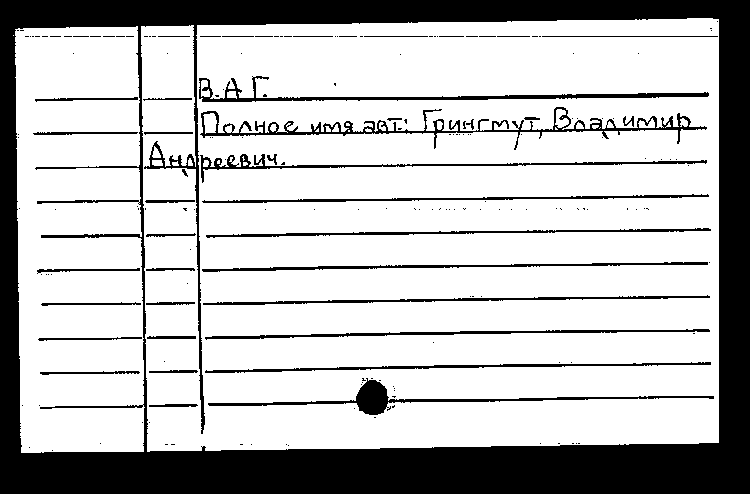 В.А Г.
Полное имя авт: Грингмут, Владимир
Андреевич.